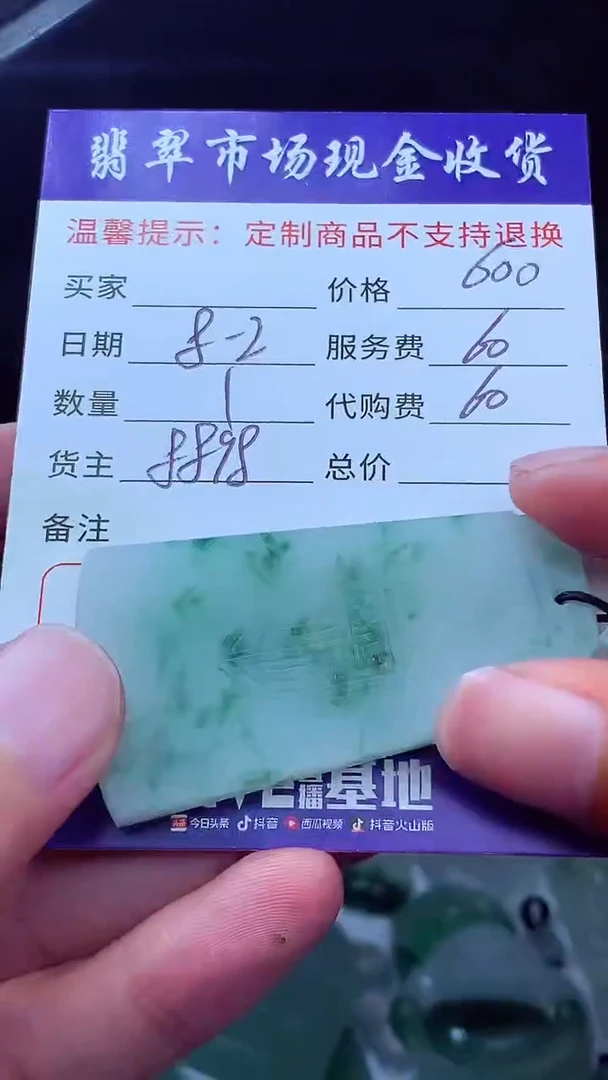 翡翠市场现金收货
温馨提示：定制商品不支持退换
买家 价格 600
日期 8-2 服务费 60
数量 1 代购费 60
货主 8898 总价
备注
播基地
今日头条 抖音 西瓜视频 抖音火山版